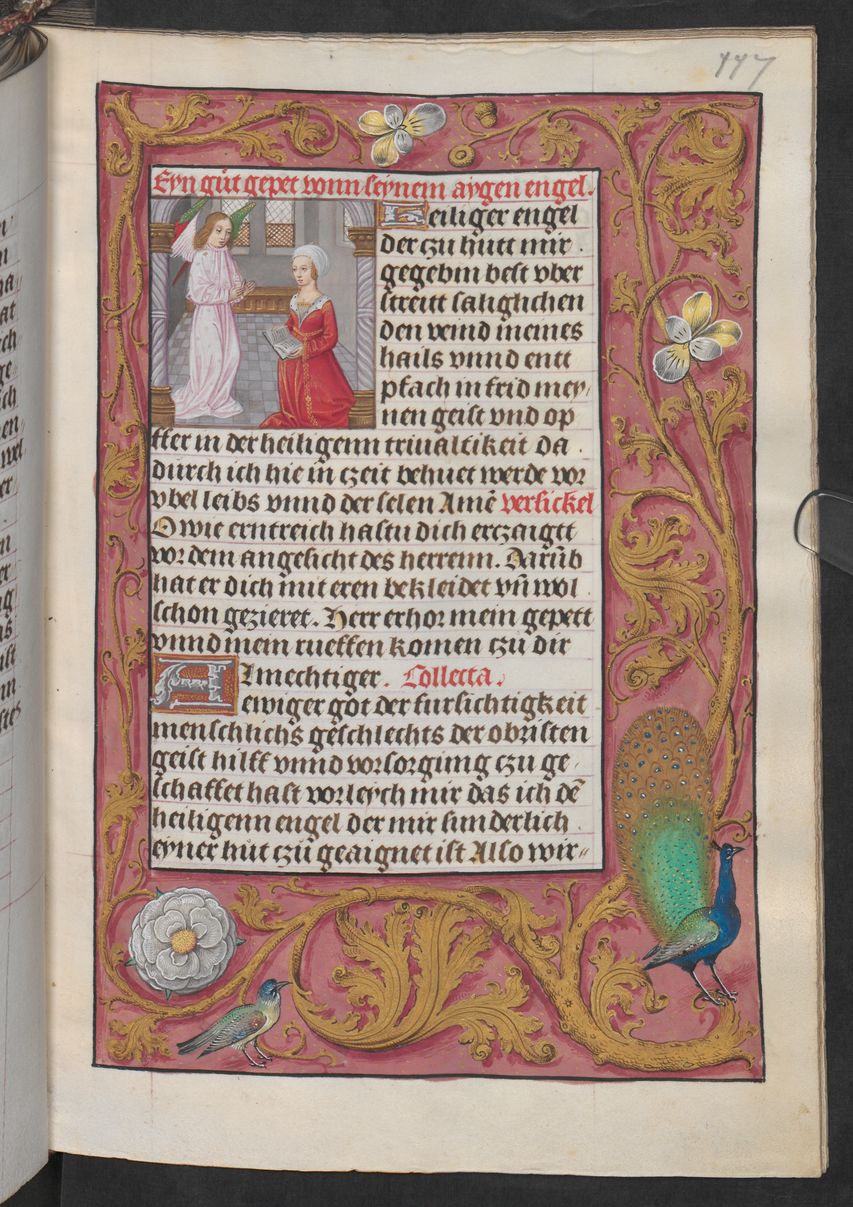 117
Eyn gůt gepet vonn seynem aygen engel.
Heiliger engel
der czu hutt mir
gegebm best vber
streitt saliglichen
den veind meines
hails vnnd entt
pfach in frid mey/
nen geist vnd op
ffer in der heiligenn triualtikeit da
durch ich hie in czeit behuet werde vor
vbel leibs vnnd der selen Amē versickel
O wie erntreich hastu dich erczaigtt
vor dem angesicht des herrenn. Darūb
hat er dich mit eren bekleidet vn̄ wol
schon gezieret. Herr erhor mein gepett
vnnd mein rueffen komen czu dir
Almechtiger. Collecta.
ewiger got der fursichtigkeit
menschlichs geschlechts der obristen
geist hilff vnnd vorsorgung czu ge
schaffet hast vorleych mir das ich dē
heiligenn engel der mir sunderlich
eyner hut czu geaignet ist Also wir